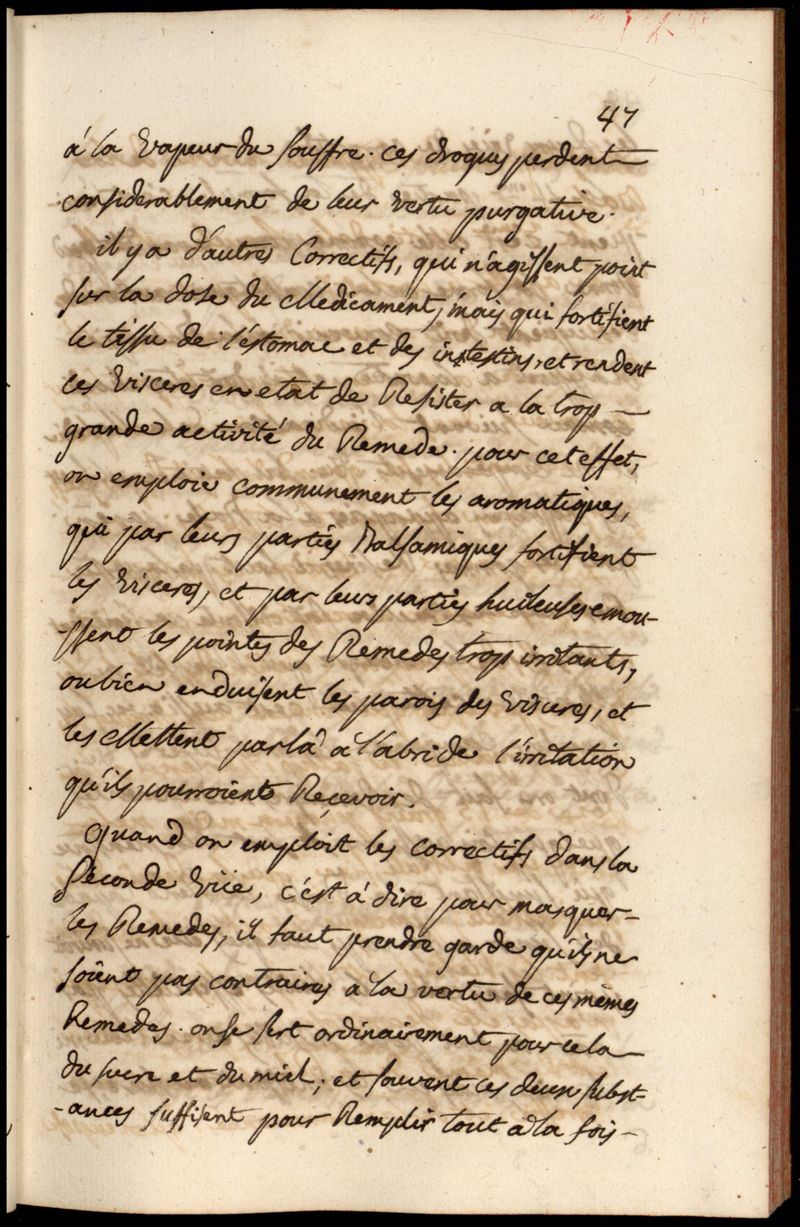 47
à la vapeur du souffre. ces drogues perdent
considerablement de leur vertu purgative.
il y a d'autres Correctifs, qui n'agissent point
sur la dose du Medicament, mais qui fortifient
le tissu de l'éstomac et des intestins, et rendent
ces visceres en etat de Resister a la trop
grande activité du Remede. pour cet effet,
on emploie communement les aromatiques,
qui par leurs parties Balsamiques fortifient
les visceres, et par leurs parties huileuses emou-
-ssent les pointes des Remedes trop irritants,
ou bien enduisent les parois des visceres, et
les Mettent par là à l'abri de l'irritation
qu'ils pourroient Reçevoir.
Quand on emploit les correctifs dans la
seconde vüe, c'est à dire pour masquer
les Remedes, il faut prendre garde qu'ils ne
soient pas contraires à la vertu de ces mêmes
Remedes. on se sert ordinairement pour cela
du sucre et du miel; et souvent ces deux subst-
-ances suffisent pour Remplir tout à la fois